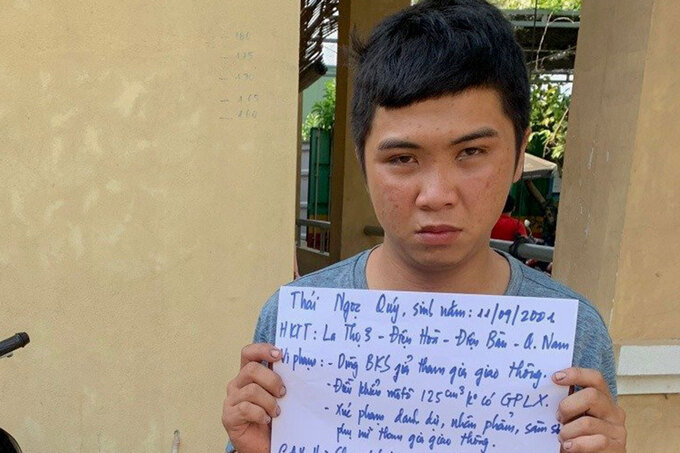 180
175
170
165
160
Thái Ngọc Quý, sinh năm: 11/09/2001
HKTT: La Thọ 3 - Điện Hòa - Điện Bàn - Q. Nam
Vi phạm: - Dùng BKS giả tham gia giao thông.
- Điều khiển môtô 125cm³ k° có GPLX.
- Xúc phạm danh dự, nhân phẩm, sàm sỡ
phụ nữ tham gia giao thông.